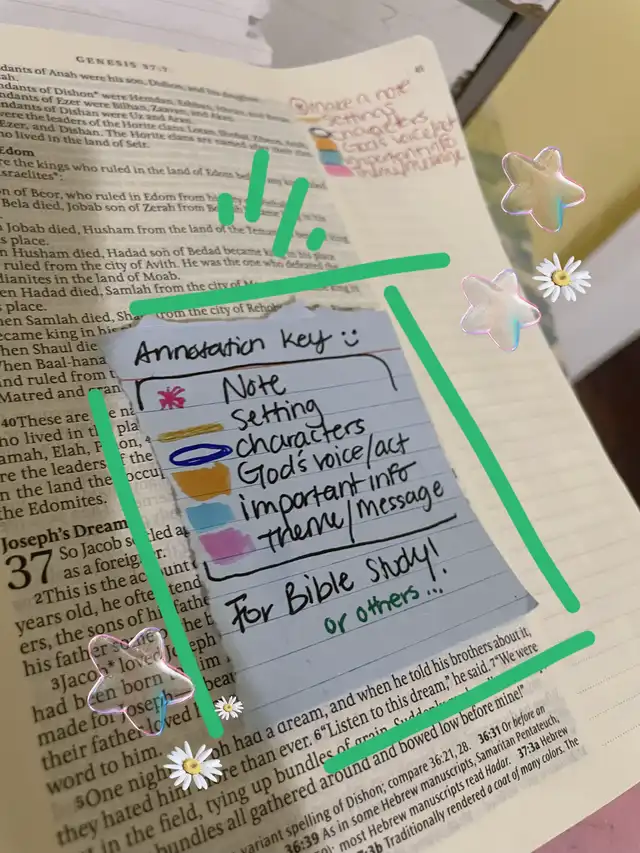 GENESIS 37:7
dants of Anah were his son, Dishon, and his daughter,
ah.
ndants of Dishon* were Hemdan, Eshban,
ndants of Ezer were Bilhan, Zaavan, and Akan.
ndants of Dishan were Uz and Aran.
were the leaders of the Horite clans: Lotan, Shobal, Zibeon, Anah,
Ezer, and Dishan. The Horite clans are named
ho lived in the land of Seir.
Edom
re the kings who ruled in the land of Edom before any king ruled
sraelites*:
n of Beor, who ruled in Edom from his
Bela died, Jobab son of Zerah from
Jobab died, Husham from the land of the
s place.
n Husham died, Hadad son of Bedad became king in his place
ruled from the city of Avith. He was the one who defeated the
dianites in the land of Moab.
en Hadad died, Samlah from the city of
s place.
hen Samlah died, from the city of
came king in his
hen Shaul die
hen Baal-hana
and ruled from t
Matred and
40These are the na
ho lived in the pla
amah, Elah,
re the leaders of the
n the land the
the Edomites.
make a note
settings
characters
God's voice/act
important info
theme/message
Annotation Key :)
Note
setting
characters
God's voice/act
important info
theme/message
For Bible Study!
or others...
Joseph's Dream
37 So Jacob settled a
as a foreig
2This is the account
years old, he often tend
ers, the sons of his fathe
his father
3Jacob* loved Joseph
had been born im
made for Joseph— beat
their father loved
word to him.
5One night had a dream, and when he told his brothers about it,
they hated him more than ever. 6“Listen to this dream,” he said. 7“We were
in the field, tying up bundles of grain. Suddenly
bundles all gathered around and bowed low before mine!”
variant spelling of Dishon; compare 36:21, 28. 36:31 Or before an
36:39 As in some Hebrew manuscripts, Samaritan Pentateuch,
most Hebrew manuscripts read Hadar. 37:3a Hebrew
37:3b Traditionally rendered a coat of many colors. The